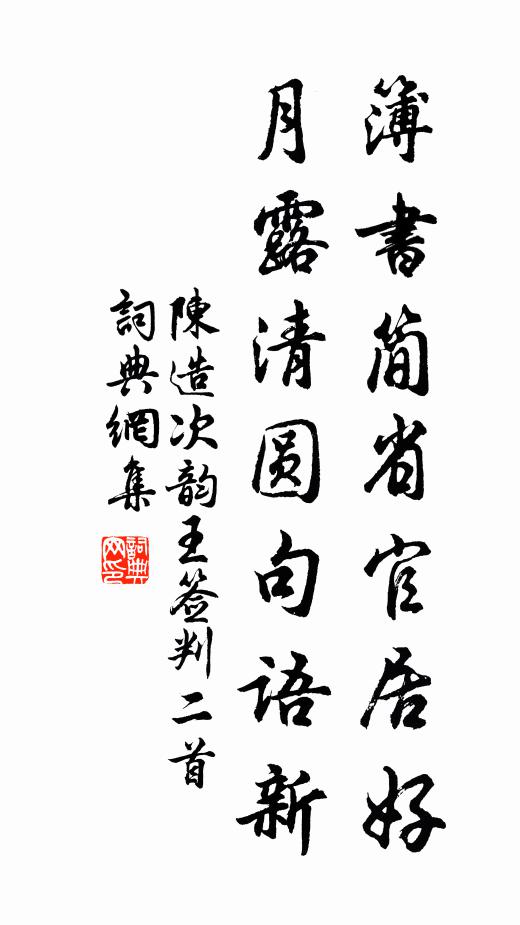 簿書簡省官居好
月露清圆句語新
陳造次韵王签判二首
詞典網集
詞典网印